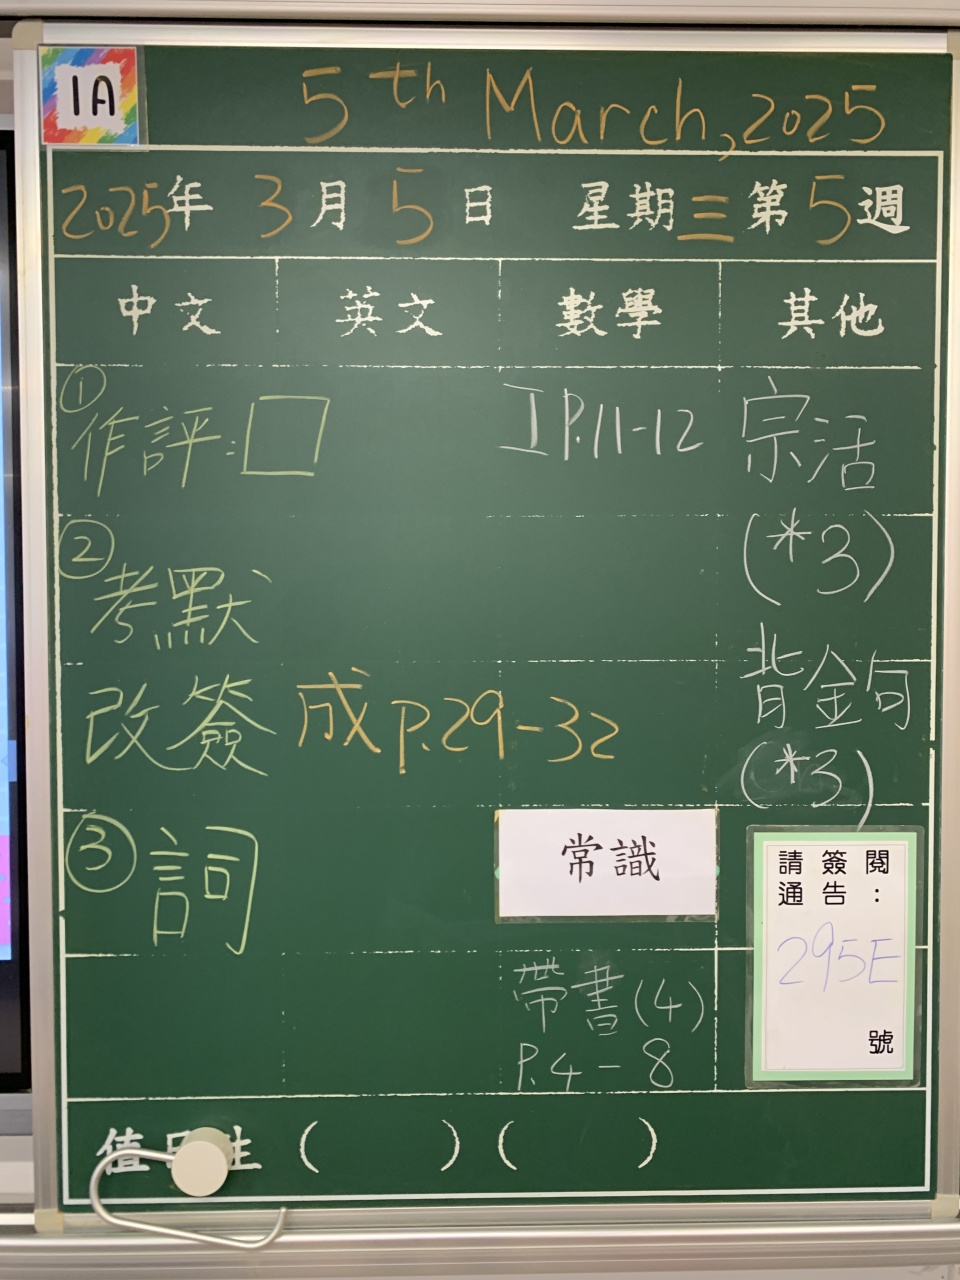 1A
5th March, 2025
2025年 3月 5日 星期三 第5週
中文 英文 數學 其他
① 作評:□
工P.11-12
宗活
(*3)
② 考默
改簽
成P.29-32
背金句
(*3)
③ 詞
常識
請簽閱
通告:
295E
號
帶書(4)
P.4-8
值日生 ( ) ( )